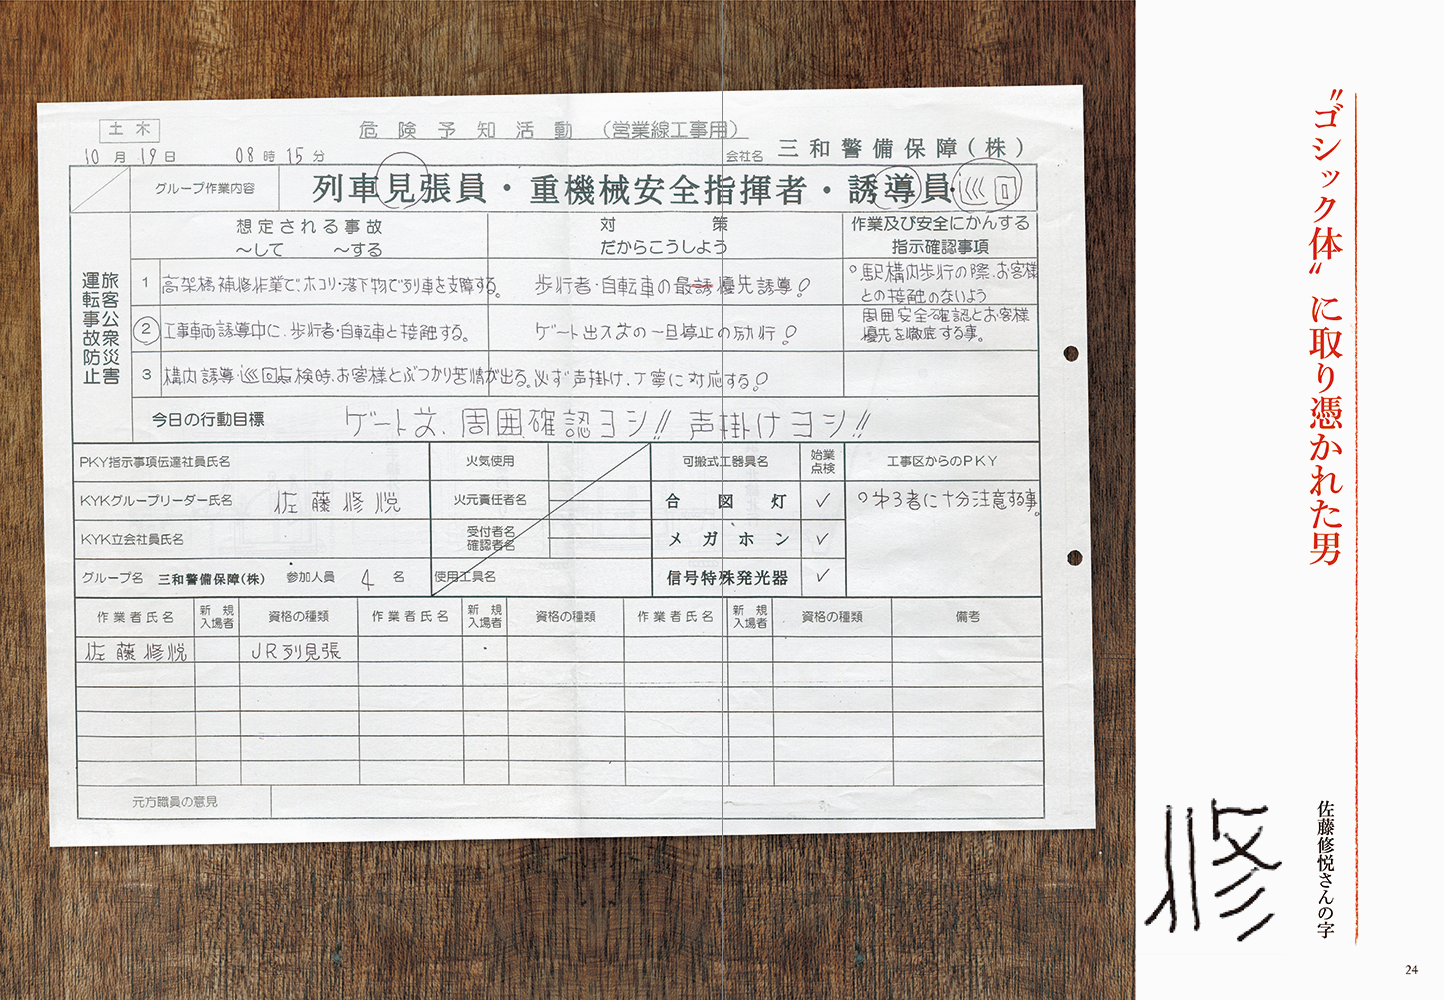 〝ゴシック体〟に取り憑かれた男
佐藤修悦さんの字
修
24
土木
危険予知活動（営業線工事用）
10月19日 08時15分
会社名 三和警備保障(株)
グループ作業内容
列車見張員・重機械安全指揮者・誘導員 巡回
想定される事故
〜して 〜する
対策
だからこうしよう
作業及び安全にかんする
指示確認事項
旅客公衆災害
運転事故防止
1 高架橋補修作業で、ホコリ・落下物で列車を支障する。
歩行者・自転車の最誘優先誘導!
○駅構内歩行の際、お客様
との接触のないよう
周囲安全確認とお客様
優先を徹底する事。
2 工事車両誘導中に、歩行者・自転車と接触する。
ゲート出入口の一旦停止の励行!
3 構内誘導・巡回点検時、お客様とぶつかり苦情が出る。必ず声掛け、丁寧に対応する!
今日の行動目標
ゲート、周囲確認ヨシ!! 声掛けヨシ!!
PKY指示事項伝達社員氏名
火気使用
可搬式工器具名
始業
点検
工事区からのPKY
KYKグループリーダー氏名 佐藤修悦
火元責任者名
合図灯 ✓
○オ3者に十分注意する事。
KYK立会社員氏名
受付者名
確認者名
メガホン ✓
グループ名 三和警備保障(株) 参加人員 4名
使用工具名
信号特殊発光器 ✓
作業者氏名 新規入場者 資格の種類 作業者氏名 新規入場者 資格の種類 作業者氏名 新規入場者 資格の種類 備考
佐藤修悦 JR列見張
元方職員の意見